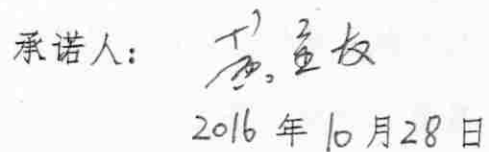 承诺人：
2016 年 10 月 28 日